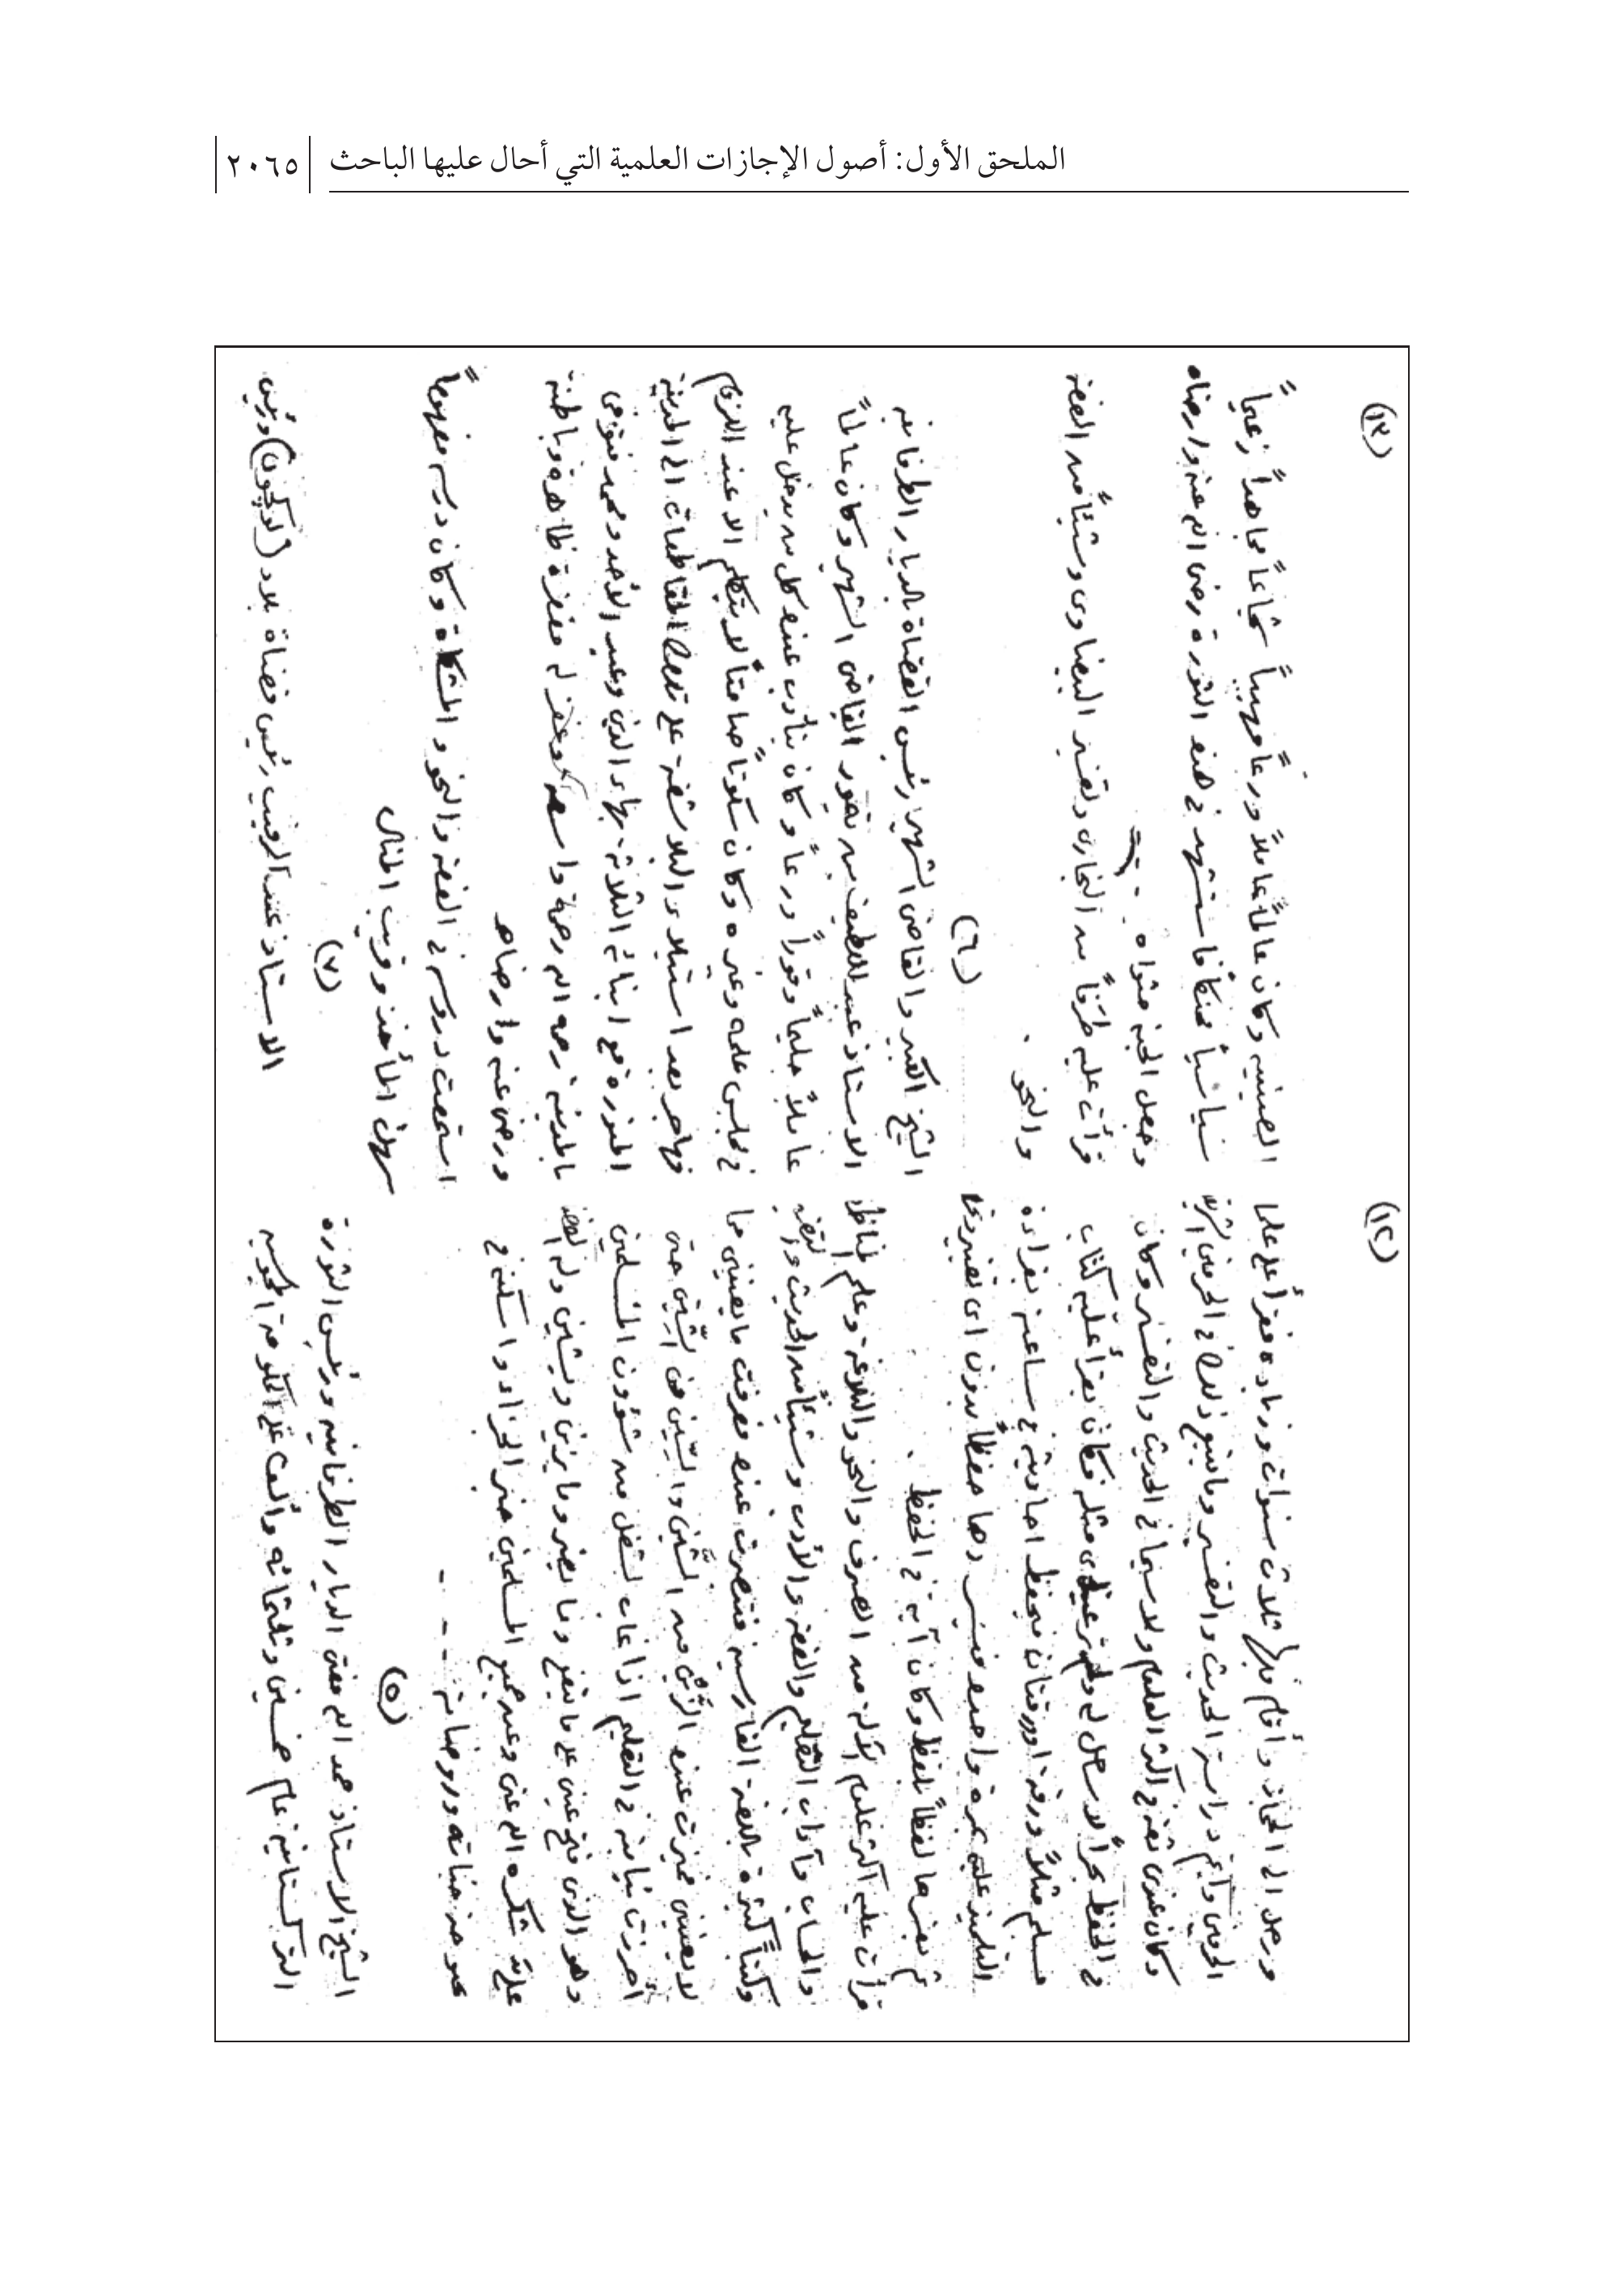 الملحق الأول: أصول الإجازات العلمية التي أحال عليها الباحث
٢٠٦٥
(١٢)
ورحل الى الحجاز وأقام فيها ثلاث سنوات وزيادة فقرأ على علما
الحرمين وأتم دراسة الحديث والتفسير وما يتبع ذلك في الحرمين الشريفين
وكان عندى ثقة في اكثر العلوم ولا سيما في الحديث والتفسير وكان
في الحفظ بحراً لا ساحل له ولم تر عيناى مثله فكان يقرأ عليه كتاب
مسلم مثلاً ورقة او ورقتان فيحفظ احاديثه في ساعته بقراءة
التلميذ عليه بمرة واحدة فيسردها حفظاً بدون اى تغيير
ثم يفسرها لفظاً بلفظ وكان آية في الحفظ .
قرأت عليه اكثر علوم الآلة من الصرف والنحو والبلاغة وعلم المناظرة
والحساب وآداب التعليم والفقه والأدب وشيئاً من الحديث
وكتباً كثيرة باللغة الفارسية عنده فعرفت ما يعنينى مما
لا يعنينى فميزت عنده الزَّين من الشَّين والسِّين من الشِّين حتى
أحرزت نيابته في التعليم اذا غاب لشغل من شؤون المسلمين
وهو الذى فتح عينى على ما ينفع وما يضر وما يزين ويشين وله الفضل
علىّ شكره الله عنى وعن جميع المسلمين خير الجزاء واسكنه في
بحبوحة جناته وروضاته . - - -
(٥)
الشيخ الاستاذ حمد الله مفتى الديار الطرفانية ورئيس الثورة
التركستانية عام خمسين وثلثمائه وألف على الحكومة المجوسية
(١٣)
الصينيه وكان عالماً عاملاً ورعاً مهيباً شجاعاً مجاهداً زعيماً
سياسياً محنكاً فاستشهد في هذه الثورة رضى الله عنه وارضاه
وجعل الجنة مثواه .
قرأت عليه طرفاً من البخارى وتفسير البيضاوى وشيئاً من الفقه
والنحو .
(٦)
الشيخ الكبير والقاضى الشهير رئيس القضاة بالديار الطرفانيه
الاستاذ عبد اللطيف بن القاضى الشهير وكان عالماً
عاملاً حليماً وقوراً ورعاً وكان يتأدب عنده كل من يدخل عليه
في مجلس علمه وغيره وكان سكوتاً صامتاً لا يتكلم الا عند اللزوم
فهاجر بعد استيلاء البلاشفة على تلك المقاطعات الى المدينة
المنورة مع ابنائه الثلاثة بهاء الدين وعبد الأحد ومحمد فتوفى
بالمدينة رحمه الله رحمة واسعة وغفر له مغفرة ظاهرة وباطنة
ورضى عنه وارضاه
استمعت دروسه في الفقه والنحو والمشكاة وكان درسه مفهوماً
سهل المأخذ وقريب المنال
(٧)
الاستاذ عبد الرقيب رئيس قضاة بلاد (لوكچون) ورئيس